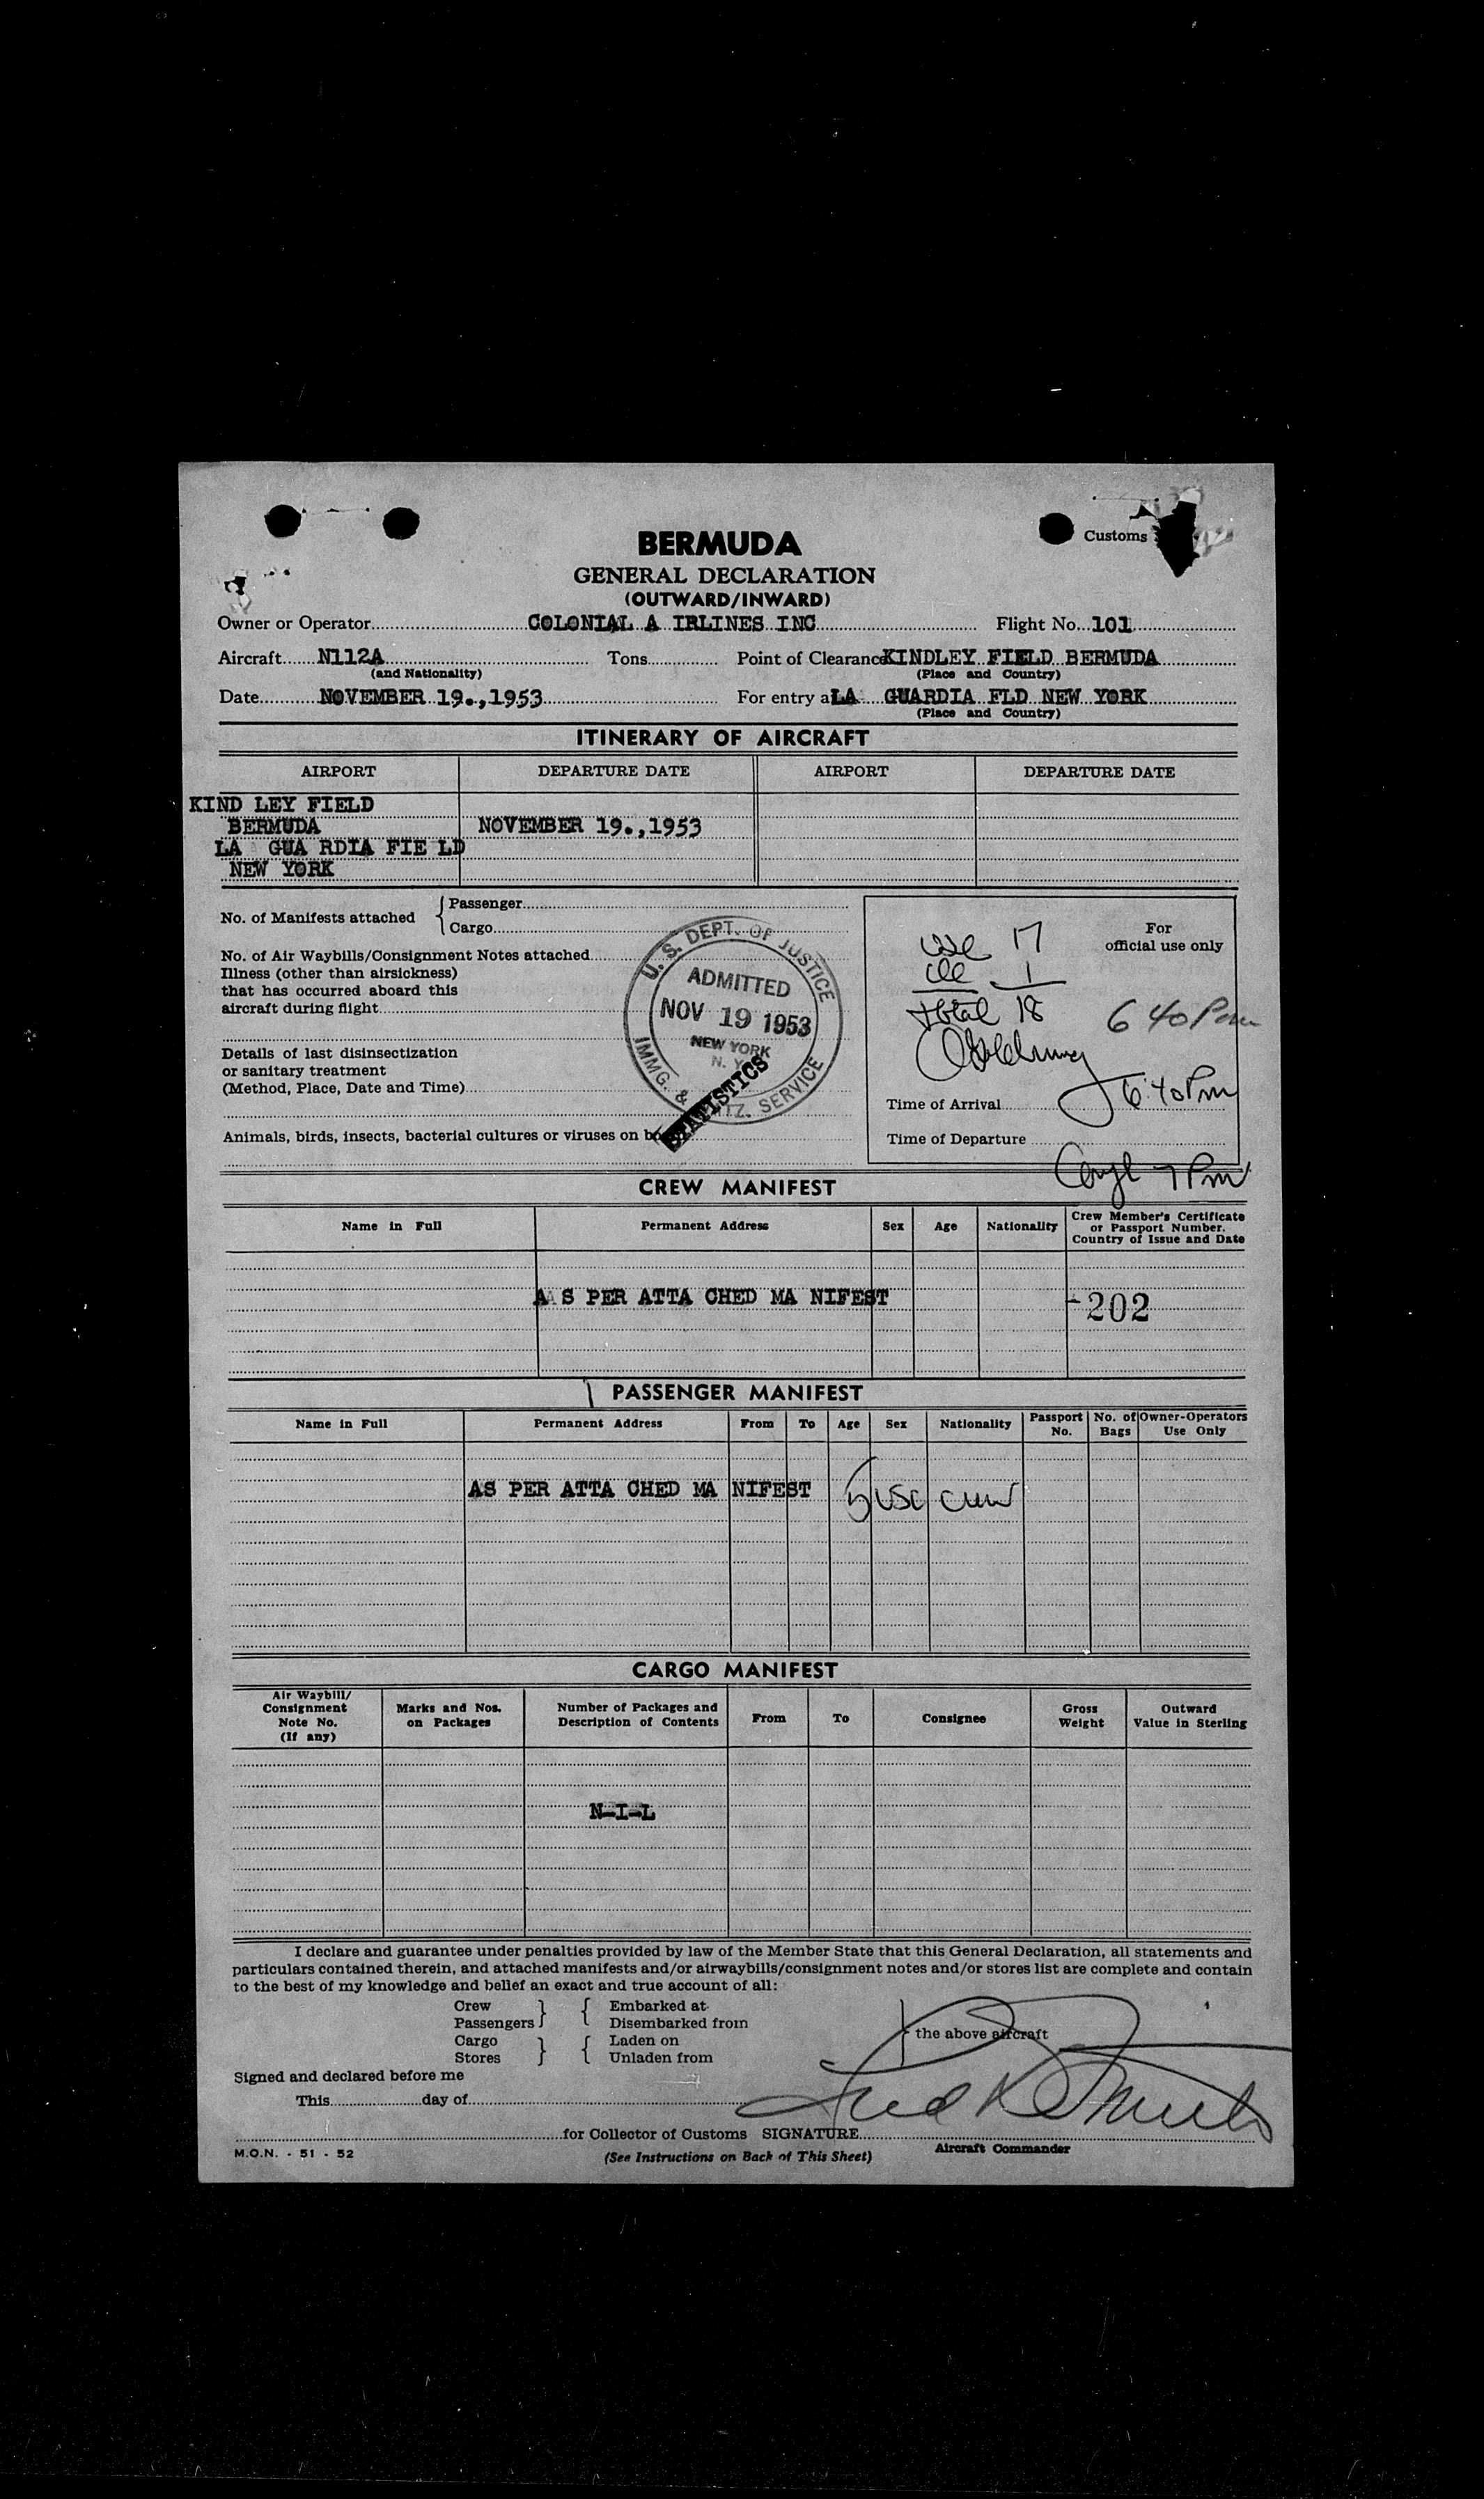 BERMUDA
Customs
GENERAL DECLARATION
(OUTWARD/INWARD)
Owner or Operator COLONIAL A IRLINES INC Flight No. 101
Aircraft N112A Tons Point of Clearance KINDLEY FIELD BERMUDA
(and Nationality) (Place and Country)
Date NOVEMBER 19.,1953 For entry at LA GUARDIA FLD NEW YORK
(Place and Country)
ITINERARY OF AIRCRAFT
AIRPORT DEPARTURE DATE AIRPORT DEPARTURE DATE
KIND LEY FIELD
BERMUDA NOVEMBER 19.,1953
LA GUA RDIA FIE LD
NEW YORK
No. of Manifests attached Passenger
Cargo
No. of Air Waybills/Consignment Notes attached
Illness (other than airsickness)
that has occurred aboard this
aircraft during flight
Details of last disinsectization
or sanitary treatment
(Method, Place, Date and Time)
Animals, birds, insects, bacterial cultures or viruses on
U. S. DEPT. OF JUSTICE
ADMITTED
NOV 19 1953
NEW YORK
N. Y.
IMMG. & NTZ. SERVICE
STATISTICS
For
official use only
usc 17
1
total 18
6 40 Pm
Time of Arrival 6:40 Pm
Time of Departure
7 Pm
CREW MANIFEST
Name in Full Permanent Address Sex Age Nationality Crew Member's Certificate
or Passport Number.
Country of Issue and Date
A S PER ATTA CHED MA NIFEST -202
PASSENGER MANIFEST
Name in Full Permanent Address From To Age Sex Nationality Passport No. No. of Bags Owner-Operators Use Only
AS PER ATTA CHED MA NIFEST 5 usc crew
CARGO MANIFEST
Air Waybill/
Consignment
Note No.
(If any)
Marks and Nos.
on Packages
Number of Packages and
Description of Contents
From To Consignee
Gross
Weight
Outward
Value in Sterling
N-I-L
I declare and guarantee under penalties provided by law of the Member State that this General Declaration, all statements and
particulars contained therein, and attached manifests and/or airwaybills/consignment notes and/or stores list are complete and contain
to the best of my knowledge and belief an exact and true account of all:
Crew Embarked at
Passengers Disembarked from
the above aircraft
Cargo Laden on
Stores Unladen from
Signed and declared before me
This day of
for Collector of Customs SIGNATURE
Aircraft Commander
M.O.N. - 51 - 52
(See Instructions on Back of This Sheet)